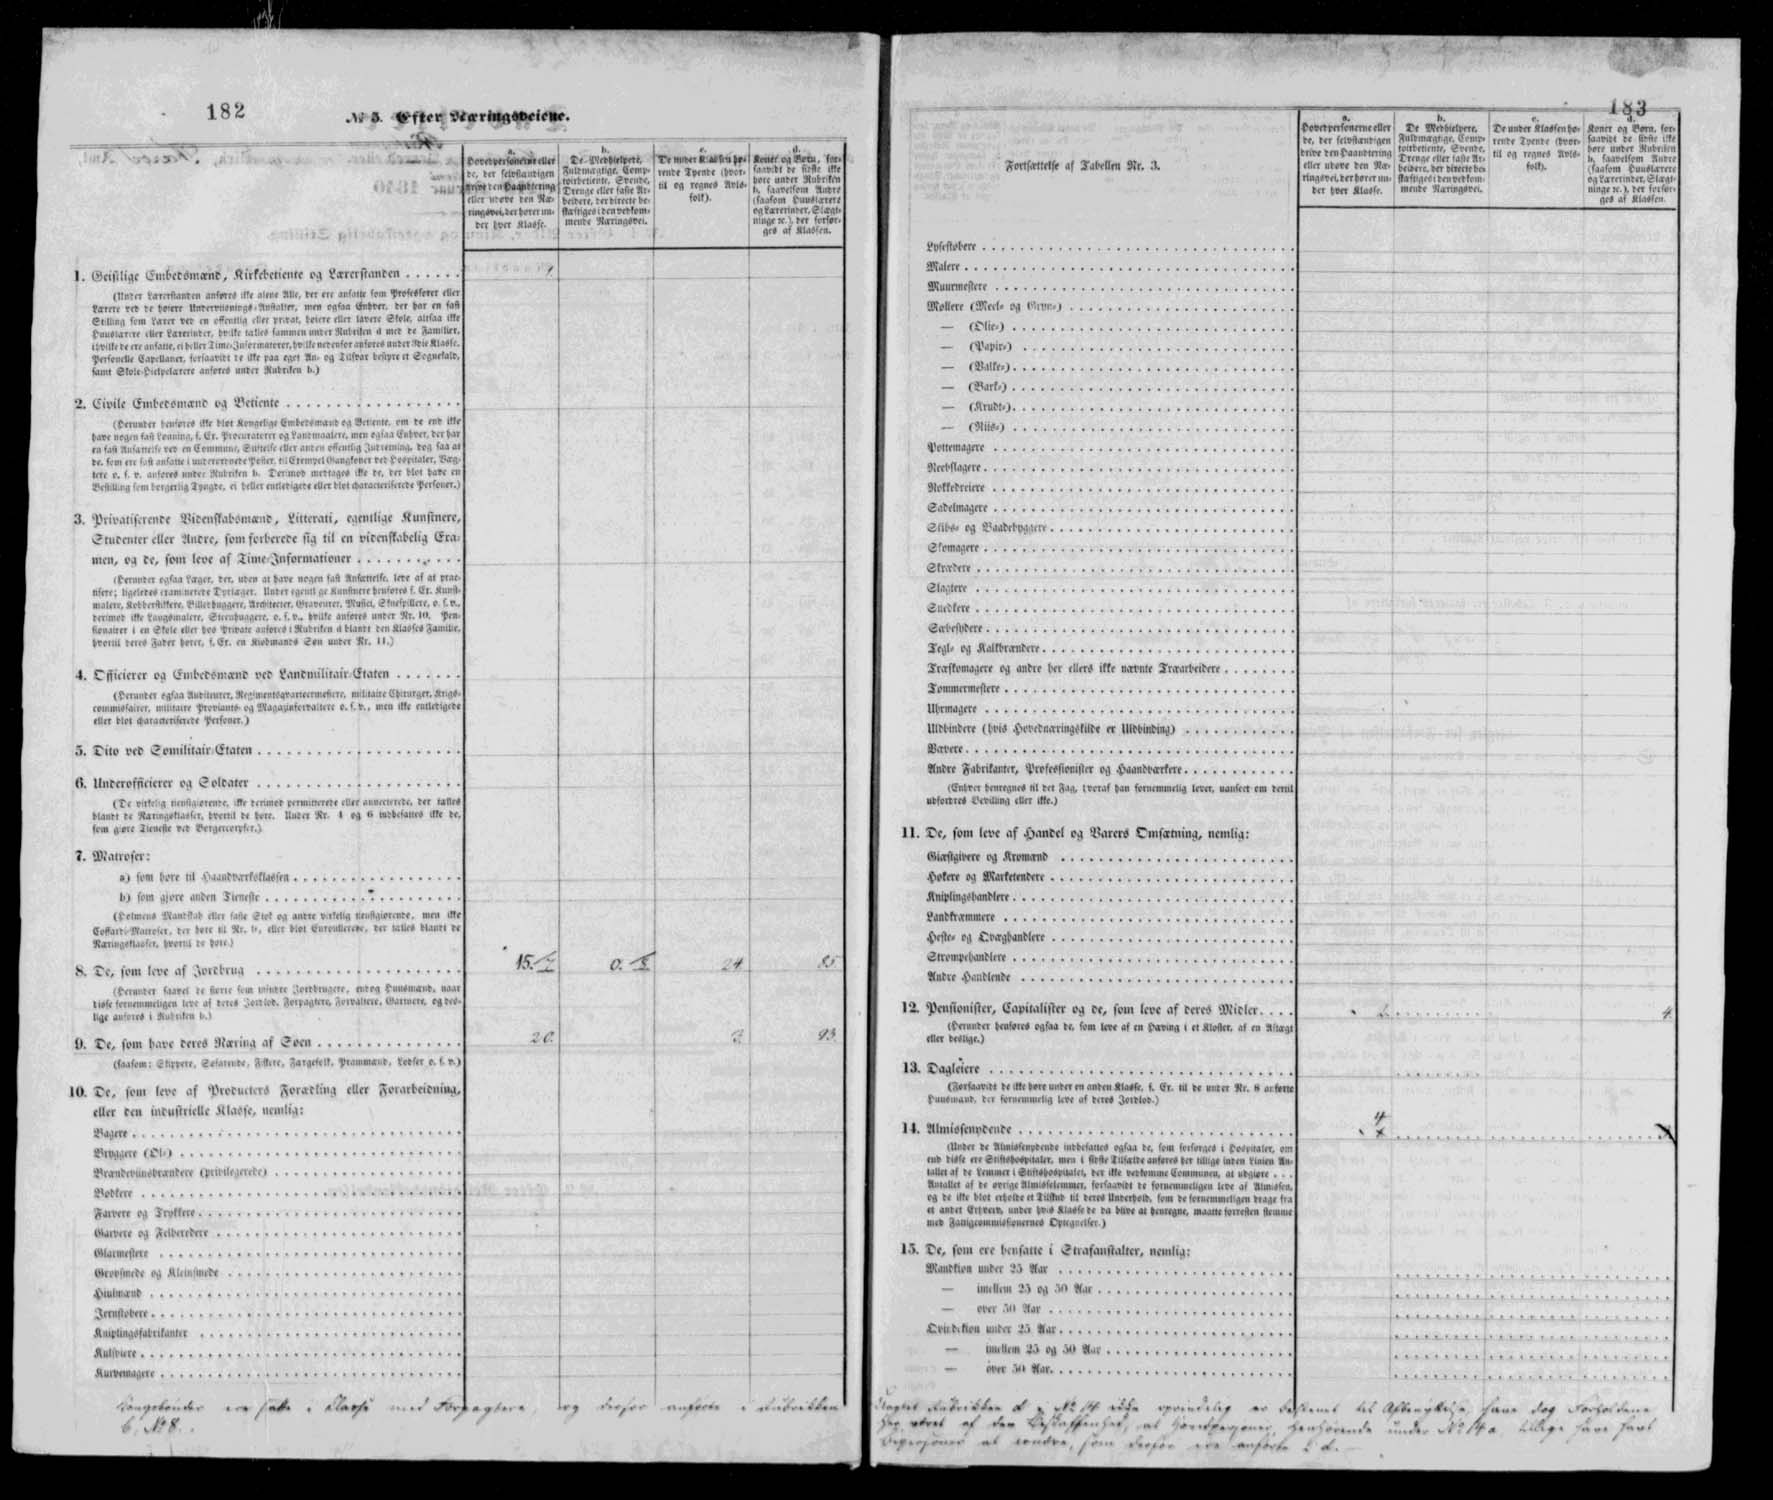 182
№ 3. Efter Næringsveiene.
a.
Hovedpersonerne eller
de, der selvstændigen
drive den Haandtering
eller udøve den Næ-
ringsvei, der hører un-
der hver Klasse.
b.
De Medhielpere,
Fuldmægtige, Comp-
toirbetiente, Svende,
Drenge eller faste Ar-
beidere, der directe be-
skæftiges i den vedkom-
mende Næringsvei.
c.
De under Klassen hø-
rende Tyende (hvor-
til og regnes Avls-
folk).
d.
Koner og Børn, for-
saavidt de sidste ikke
høre under Rubriken
b, saavelsom Andre
(saasom Huuslærere
og Lærerinder, Slægt-
ninge ꝛc.), der forsør-
ges af Klassen.
1. Geistlige Embedsmænd, Kirkebetiente og Lærerstanden
(Under Lærerstanden anføres ikke alene Alle, der ere ansatte som Professorer eller
Lærere ved de høiere Underviisnings-Anstalter, men ogsaa Enhver, der har en fast
Stilling som Lærer ved en offentlig eller privat, høiere eller lavere Skole, altsaa ikke
Huuslærere eller Lærerinder, hvilke tælles sammen under Rubriken d med de Familier,
i hvilke de ere ansatte, ei heller Time-Informatorer, hvilke nedenfor anføres under 3die Klasse.
Personelle Capellaner, forsaavidt de ikke paa eget An- og Tilsvar bestyre et Sognekald,
samt Skole-Hielpelærere anføres under Rubriken b.)
2. Civile Embedsmænd og Betiente
(Herunder henføres ikke blot Kongelige Embedsmænd og Betiente, om de end ikke
have nogen fast Lønning, f. Ex. Procuratorer og Landmaalere, men ogsaa Enhver, der har
en fast Ansættelse ved en Commune, Stiftelse eller anden offentlig Indretning, dog saa at
de, som ere fast ansatte i underordnede Poster, til Exempel Gangkoner ved Hospitaler, Væg-
tere o. s. v. anføres under Rubriken b. Derimod medtages ikke de, der blot have en
Bestilling som borgerlig Tyngde, ei heller entledigede eller blot characteriserede Personer.)
3. Privatiserende Videnskabsmænd, Litterati, egentlige Kunstnere,
Studenter eller Andre, som forberede sig til en videnskabelig Exa-
men, og de, som leve af Time-Informationer
(Herunder ogsaa Læger, der, uden at have nogen fast Ansættelse, leve af at prac-
tisere; ligeledes examinerede Dyrlæger. Under egentlige Kunstnere henføres f. Ex. Kunst-
malere, Kobberstikkere, Billedhuggere, Architecter, Graveurer, Musici, Skuespillere, o. s. v.,
derimod ikke Laugsmalere, Steenhuggere, o. s. v., hvilke anføres under Nr. 10. Pen-
sionairer i en Skole eller hos Private anføres i Rubriken d blandt den Klasses Familie,
hvortil deres Fader hører, f. Ex. en Kiøbmands Søn under Nr. 11.)
4. Officierer og Embedsmænd ved Landmilitair-Etaten
(Herunder ogsaa Auditeurer, Regimentsqvarteermestere, militaire Chirurger, Krigs-
commissairer, militaire Proviants- og Magazinforvaltere o. s. v., men ikke entledigede
eller blot characteriserede Personer.)
5. Dito ved Sømilitair-Etaten
6. Underofficierer og Soldater
(De virkelig tienstgiørende, ikke derimod permitterede eller annecterede, der tælles
blandt de Næringsklasser, hvortil de høre. Under Nr. 4 og 6 indbefattes ikke de,
som giøre Tieneste ved Borgercorpser.)
7. Matroser:
a) som høre til Haandværksklassen
b) som gjøre anden Tieneste
(Holmens Mandskab eller faste Stok og andre virkelig tienstgiørende, men ikke
Coffardi-Matroser, der høre til Nr. 9, eller blot Enroullerede, der tælles blandt de
Næringsklasser, hvortil de høre.)
8. De, som leve af Jordbrug 15. 0. 24 85
(Herunder saavel de større som mindre Jordbrugere, endog Huusmænd, naar
disse fornemmeligen leve af deres Jordlod. Forpagtere, Forvaltere, Gartnere, og des-
lige anføres i Rubriken b.)
9. De, som have deres Næring af Søen 20. 3 93
(saasom: Skippere, Søfarende, Fiskere, Færgefolk, Prammænd, Lodser o. s. v.)
10. De, som leve af Producters Forædling eller Forarbeidning,
eller den industrielle Klasse, nemlig:
Bagere
Bryggere (Øl-)
Brændeviinsbrændere (privilegerede)
Bødkere
Farvere og Trykkere
Garvere og Felberedere
Glarmestere
Grovsmede og Kleinsmede
Hiulmænd
Jernstøbere
Kniplingsfabrikanter
Kulsviere
Kurvemagere
ere satte i Klasse med Forpagtere, og derfor anførte i Rubrikken
b. № 8.
183
Fortsættelse af Tabellen Nr. 3.
a.
Hovedpersonerne eller
de, der selvstændigen
drive den Haandtering
eller udøve den Næ-
ringsvei, der hører un-
der hver Klasse.
b.
De Medhielpere,
Fuldmægtige, Comp-
toirbetiente, Svende,
Drenge eller faste Ar-
beidere, der directe be-
skæftiges i den vedkom-
mende Næringsvei.
c.
De under Klassen hø-
rende Tyende (hvor-
til og regnes Avls-
folk).
d.
Koner og Børn, for-
saavidt de sidste ikke
høre under Rubriken
b, saavelsom Andre
(saasom Huuslærere
og Lærerinder, Slægt-
ninge ꝛc.), der forsør-
ges af Klassen.
Lysestøbere
Malere
Muurmestere
Møllere (Meel- og Gryn-)
— (Olie-)
— (Papir-)
— (Valke-)
— (Bark-)
— (Krudt-)
— (Riis-)
Pottemagere
Reebslagere
Rokkedreiere
Sadelmagere
Skibs- og Baadebyggere
Skomagere
Skrædere
Slagtere
Snedkere
Sæbesydere
Tegl- og Kalkbrændere
Træskomagere og andre her ellers ikke nævnte Træarbeidere
Tømmermestere
Uhrmagere
Uldbindere (hvis Hovednæringskilde er Uldbinding)
Vævere
Andre Fabrikanter, Professionister og Haandværkere
(Enhver henregnes til det Fag, hvoraf han fornemmelig lever, uanseet om dertil
udfordres Bevilling eller ikke.)
11. De, som leve af Handel og Varers Omsætning, nemlig:
Giæstgivere og Kromænd
Høkere og Marketendere
Kniplingshandlere
Landkræmmere
Heste- og Qvæghandlere
Strømpehandlere
Andre Handlende
12. Pensionister, Capitalister og de, som leve af deres Midler 4.
(Herunder henføres ogsaa de, som leve af en Hæving i et Kloster, af en Aftægt
eller deslige.)
13. Dagleiere
(Forsaavidt de ikke høre under en anden Klasse, f. Ex. til de under Nr. 8 anførte
Huusmænd, der fornemmelig leve af deres Jordlod.)
14. Almissenydende 4
(Under de Almissenydende indbefattes ogsaa de, som forsørges i Hospitaler, om
end disse ere Stiftshospitaler, men i sidste Tilfælde anføres her tillige inden Linien An-
tallet af de Lemmer i Stiftshospitalet, der ikke vedkomme Communen, at udgiøre . . .
Antallet af de øvrige Almisselemmer, forsaavidt de fornemmeligen leve af Almissen,
og de ikke blot erholde et Tilskud til deres Underhold, som de fornemmeligen drage fra
et andet Erhverv, under hvis Klasse de da blive at henregne, maatte forresten stemme
med Fattigcommissionernes Optegnelser.)
15. De, som ere hensatte i Strafanstalter, nemlig:
Mandkiøn under 25 Aar
— imellem 25 og 50 Aar
— over 50 Aar
Qvindekiøn under 25 Aar
— imellem 25 og 50 Aar
— over 50 Aar.
Rubrikken d i № 14 ikke oprindelig er bestemt til Afbenyttelse, have dog Forholdene
her været af den Beskaffenhed, at henhørende under № 14 a. tillige have havt
at , som derfor ere anførte i d.